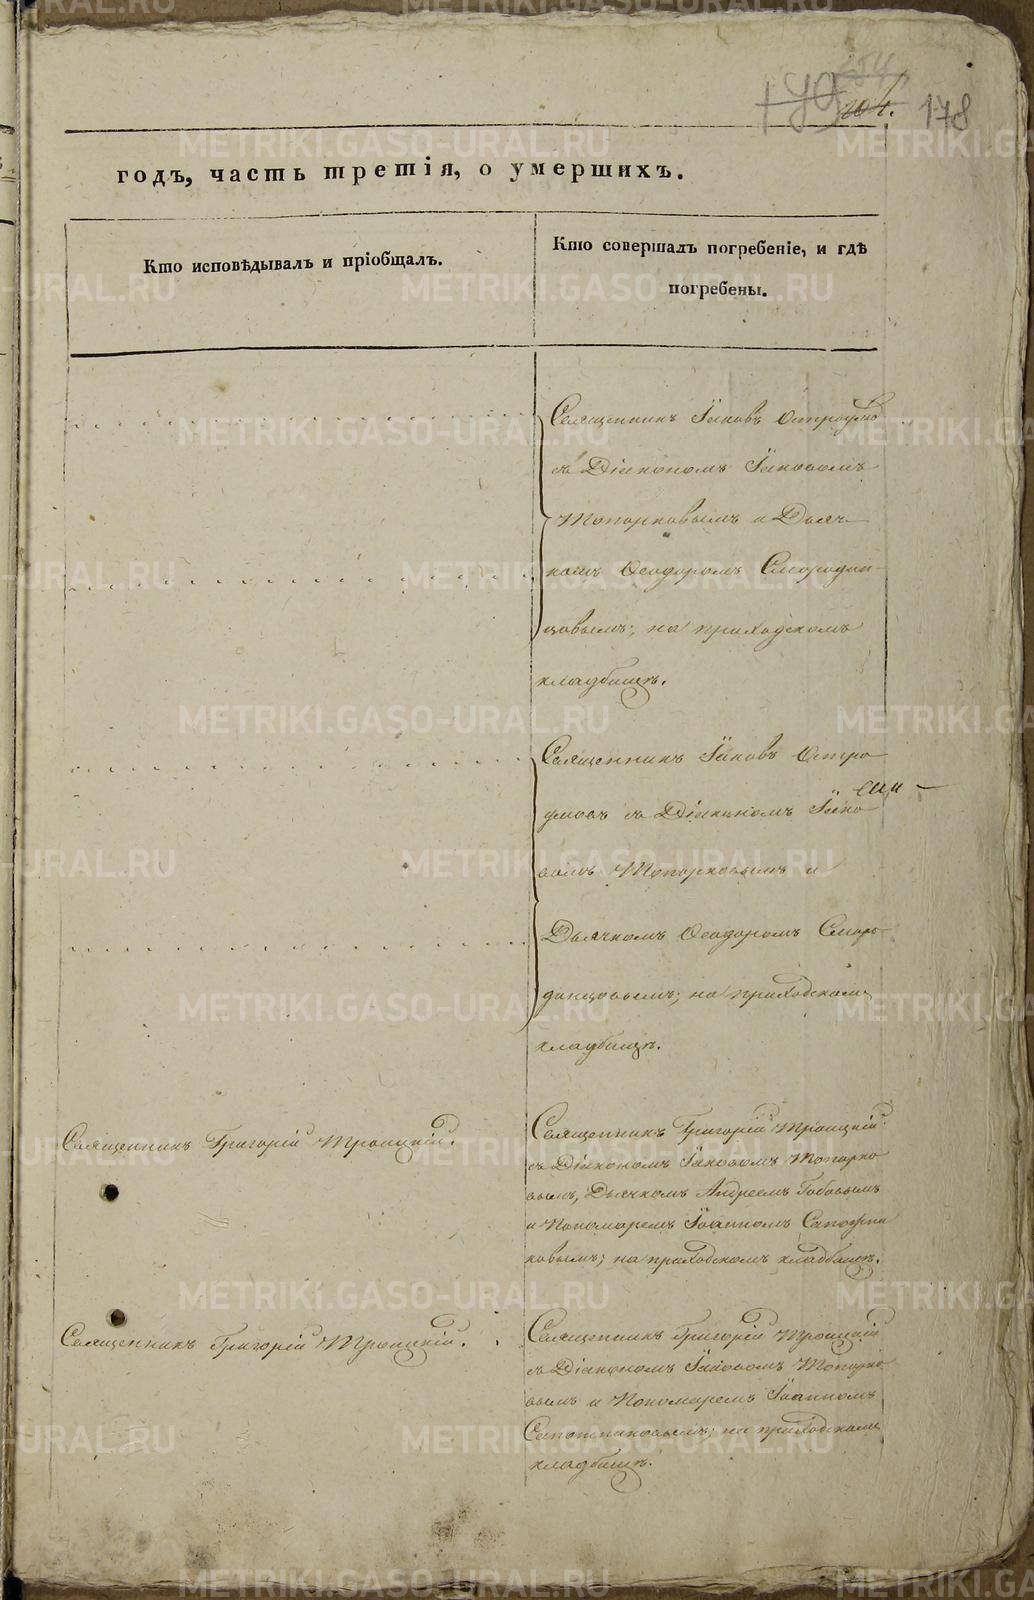 178
годъ, часть третія, о умершихъ.
Кто исповѣдывалъ и пріобщалъ.
Кто совершалъ погребеніе, и гдѣ
погребены.
Священникъ Іаковъ Остроумо
съ Діакономъ Іаковомъ
Топорковымъ и Дьяч-
комъ Ѳеодоромъ Смородин-
цовымъ; на приходскомъ
кладбищѣ.
Священникъ Іаковъ Остро
умовъ съ Діакономъ Іако
вомъ Топорковымъ и
Дьячкомъ Ѳеодоромъ Сморо
динцовымъ; на приходскомъ
кладбищѣ.
Священникъ Григорій Троицкій.
Священникъ Григорій Троицкій
съ Діакономъ Іаковомъ Топорко
вымъ, Дьячкомъ Андреемъ
и Пономаремъ Іоанномъ Сапожни
ковымъ; на приходскомъ кладбищѣ.
Священникъ Григорій Троицкій.
Священникъ Григорій Троицкій
съ Діакономъ Іаковомъ Топорко
вымъ и Пономаремъ Іоанномъ
Сапожниковымъ; на приходскомъ
кладбищѣ.
METRIKI.GASO-URAL.RU